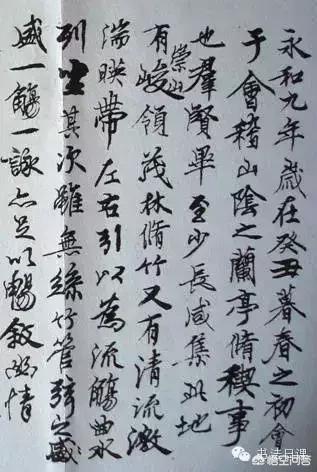 永和九年歲在癸丑暮春之初會
于會稽山陰之蘭亭脩稧事
也羣賢畢至少長咸集此地
有崇山峻領茂林脩竹又有清流激
湍暎帶左右引以為流觴曲水
列坐其次雖無絲竹管弦之盛
盛一觴一詠亦足以暢敘幽情
书法日课
悟空问答